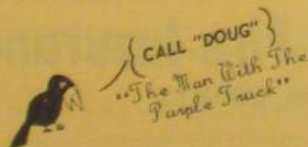 CALL "DOUG"
"The Man With The
Purple Truck"